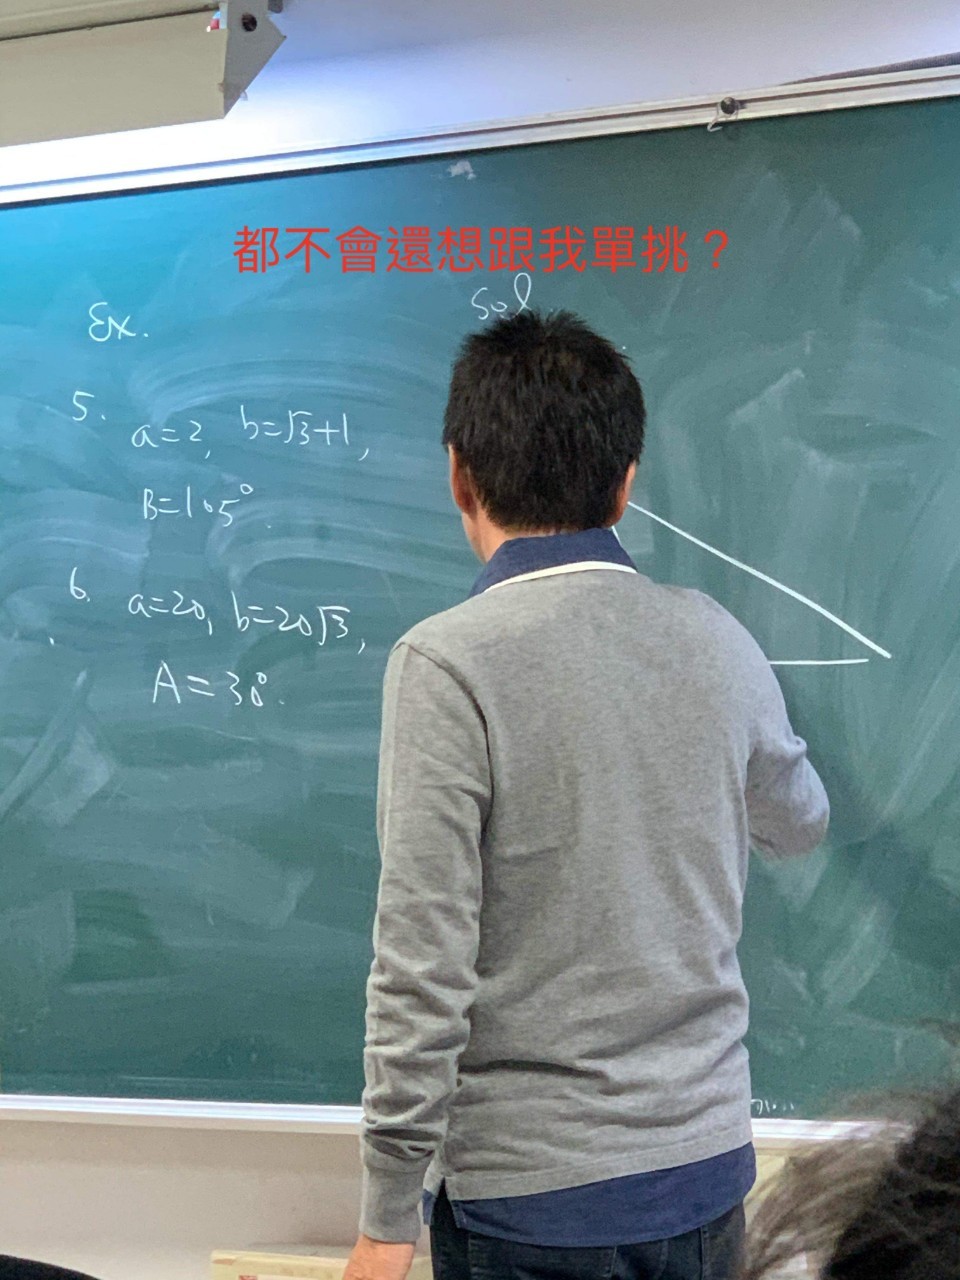 都不會還想跟我單挑？
Ex.
Sol
5.
a=2, b=√3+1,
B=105°.
6.
a=20, b=20√3,
A=30°.